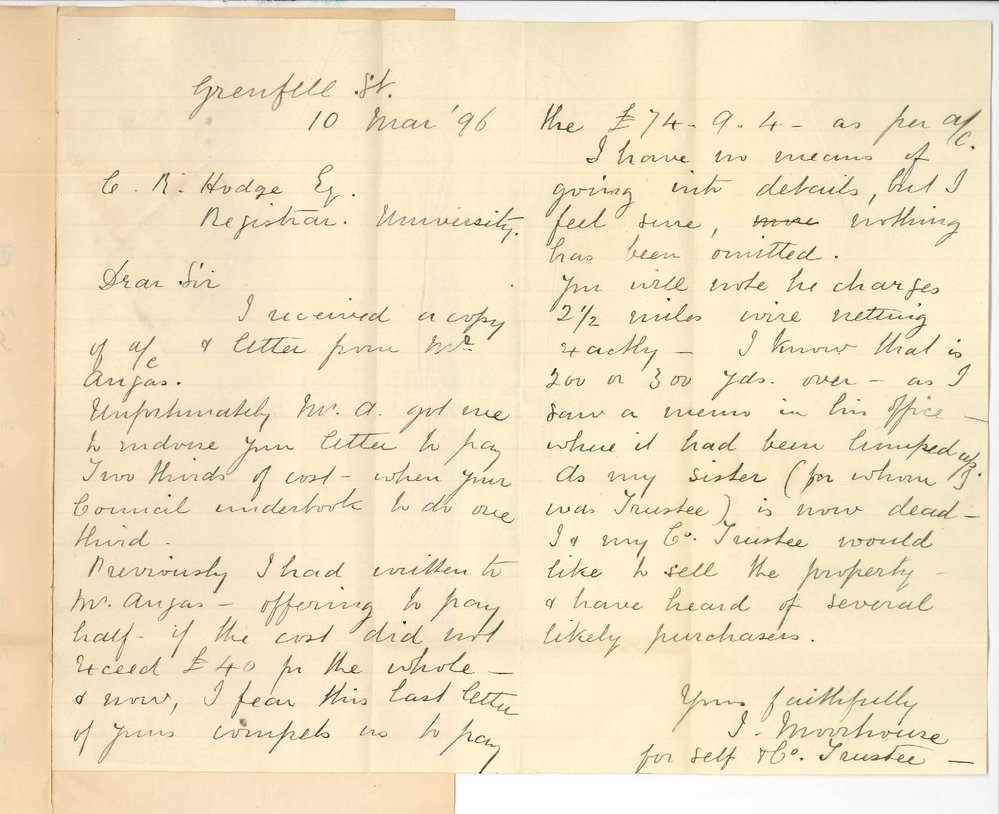 Grenfell St.
10 Mar '96
C. R. Hodge Eq.
Registrar. University.
Dear Sir
I received a copy
of a/c & letter from Mr.
Angas.
Unfortunately Mr. A. got me
to endorse your letter to pay
Two thirds of cost - when your
Council undertook to do one
third.
Previously I had written to
Mr. Angas - offering to pay
half - if the cost did not
exceed £40 for the whole -
& now, I fear this last letter
of yours compels us to pay
the £74-9-4- as per a/c.
I have no means of
going into details, but I
feel sure, nothing
has been omitted.
You will note he charges
2½ miles wire netting
exactly - I know that is
200 or 300 yds. over - as I
saw a memo in his office -
where it had been lumped up.
As my sister (for whom I
was Trustee) is now dead -
I & my Co. Trustee would
like to sell the property -
& have heard of several
likely purchasers.
Yours faithfully
J. Moorhouse
for self & Co. Trustee -